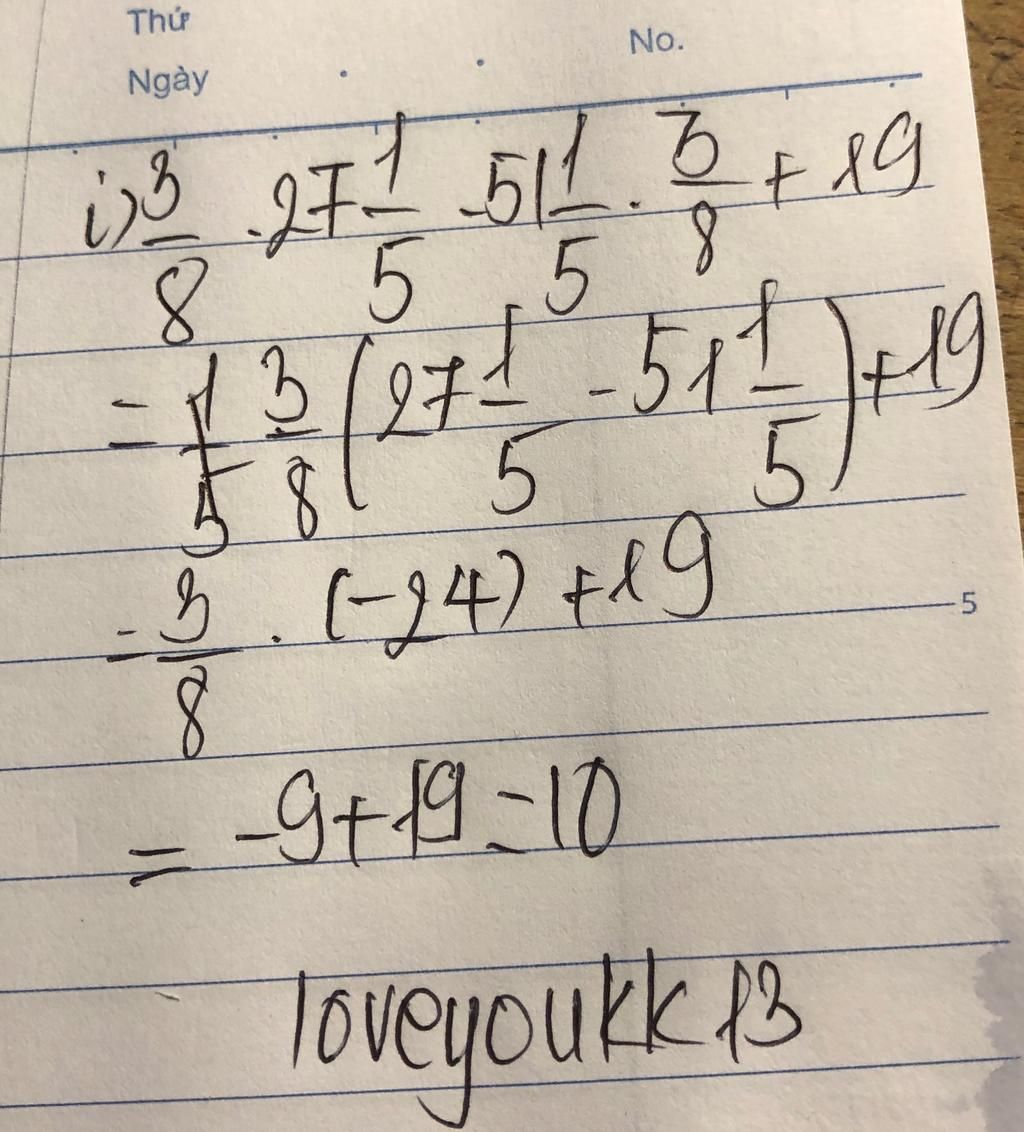 Thứ
Ngày . . No.
i) 3/8 . 27 1/5 - 51 1/5 . 3/8 + 19
= 3/8 (27 1/5 - 51 1/5) + 19
= 3/8 . (-24) + 19
5
= -9 + 19 = 10
loveyoukk13